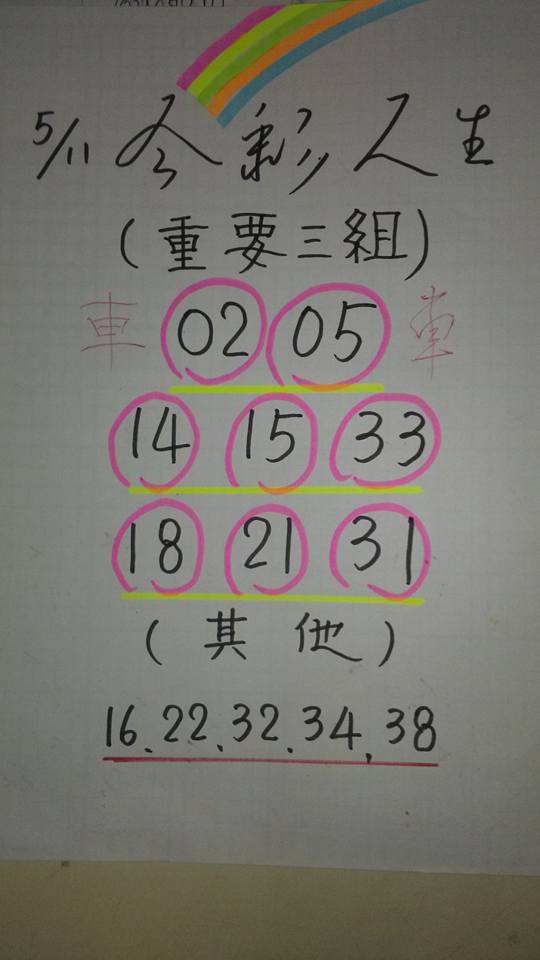 5/11 今彩人生
(重要三組)
車 02 05 車
14 15 33
18 21 31
(其他)
16、22、32、34、38